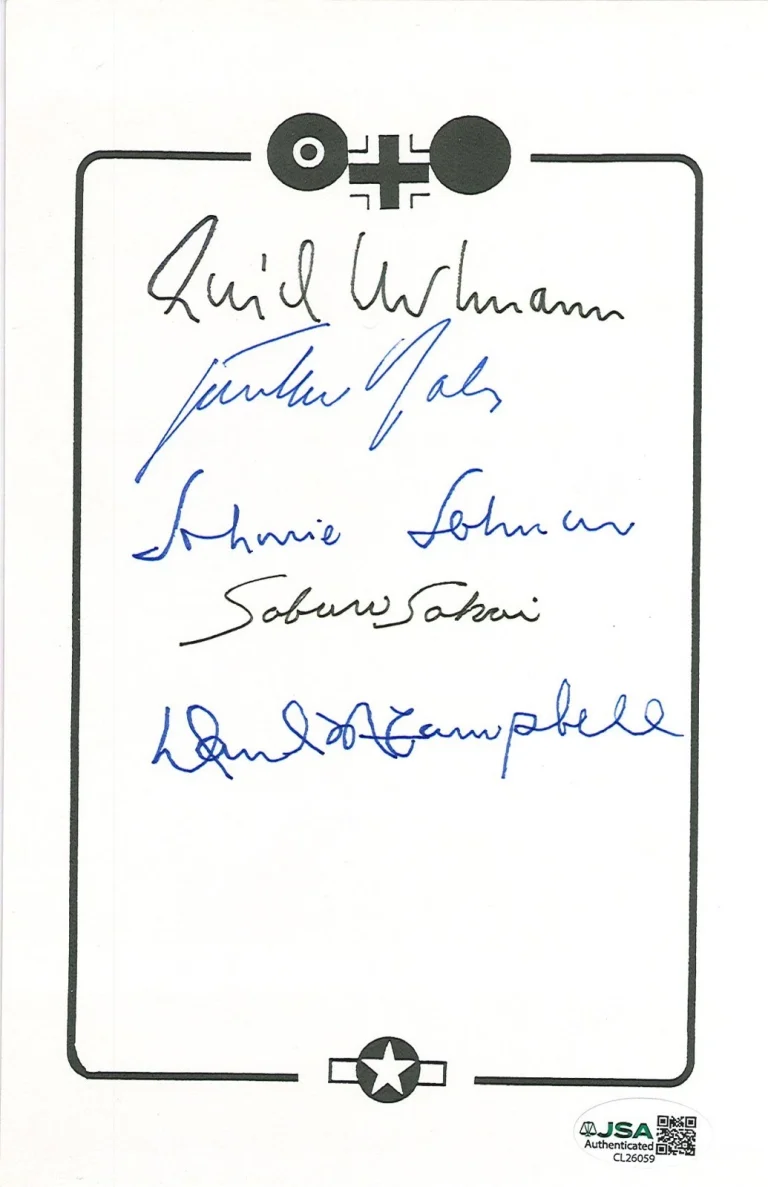 Erich Hartmann
Günther Rall
Johnnie Johnson
Saburo Sakai
David McCampbell
JSA
Authenticated
CL26059